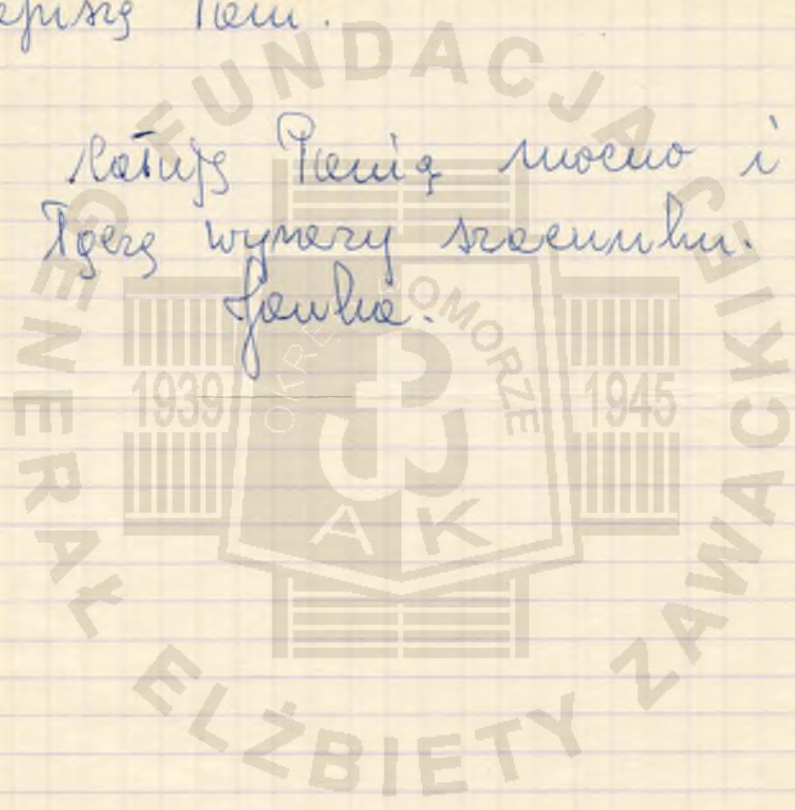 Pani.
Całuję Panią mocno i
łączę wyrazy szacunku.
Janka.
FUNDACJA
GENERAŁ ELŻBIETY ZAWACKIEJ
1939
1945
OKRĘG POMORZE
AK